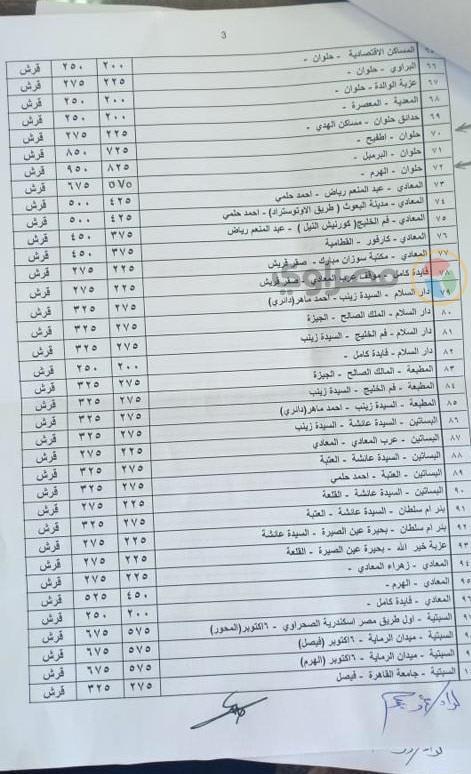 3
٦٥ المساكن الاقتصادية - حلوان - ٢٠٠ ٢٥٠ قرش
٦٦ البراوي - حلوان - ٢٢٥ ٢٧٥ قرش
٦٧ عزبة الوالدة - حلوان - ٢٠٠ ٢٥٠ قرش
٦٨ المعدية - المعصرة - ٢٠٠ ٢٥٠ قرش
٦٩ حدائق حلوان - مساكن الهدي - ٢٢٥ ٢٧٥ قرش
٧٠ حلوان - اطفيح - ٧٢٥ ٨٥٠ قرش
٧١ حلوان - البرميل - ٨٢٥ ٩٥٠ قرش
٧٢ حلوان - الهرم - ٥٧٥ ٦٧٥ قرش
٧٣ المعادي - عبد المنعم رياض - احمد حلمي ٤٢٥ ٥٠٠ قرش
٧٤ المعادي - مدينة البعوث ( طريق الاوتوستراد) - احمد حلمي ٤٢٥ ٥٠٠ قرش
٧٥ المعادي - فم الخليج( كورنيش النيل ) - عبد المنعم رياض ٣٧٥ ٤٥٠ قرش
٧٦ المعادي - كارفور - القطامية ٣٧٥ ٤٥٠ قرش
٧٧ المعادي - مكتبة سوزان مبارك - صقر قريش ٢٢٥ ٢٧٥ قرش
٧٨ فايدة كامل - موقف عرب المعادي - صقر قريش ٢٢٥ ٢٧٥ قرش
٧٩ دار السلام - السيدة زينب - احمد ماهر(دائري) ٢٧٥ ٣٢٥ قرش
٨٠ دار السلام - الملك الصالح - الجيزة ٢٧٥ ٣٢٥ قرش
٨١ دار السلام - فم الخليج - السيدة زينب ٢٧٥ ٣٢٥ قرش
٨٢ دار السلام - فايدة كامل - ٢٠٠ ٢٥٠ قرش
٨٣ المطبعة - المالك الصالح - الجيزة ٢٧٥ ٣٢٥ قرش
٨٤ المطبعة - فم الخليج - السيدة زينب ٢٧٥ ٣٢٥ قرش
٨٥ المطبعة - السيدة زينب - احمد ماهر(دائري) ٢٧٥ ٣٢٥ قرش
٨٦ البساتين - السيدة عائشة - السيدة زينب ٢٧٥ ٣٢٥ قرش
٨٧ البساتين - عرب المعادي - المعادي ٢٢٥ ٢٧٥ قرش
٨٨ البساتين - السيدة عائشة - العتبة ٢٧٥ ٣٢٥ قرش
٨٩ البساتين - العتبة - احمد حلمي ٢٧٥ ٣٢٥ قرش
٩٠ البساتين - السيدة عائشة - القلعة ٢٢٥ ٢٧٥ قرش
٩١ بئر ام سلطان - السيدة عائشة - العتبة ٢٧٥ ٣٢٥ قرش
٩٢ بئر ام سلطان - بحيرة عين الصيرة - السيدة عائشة ٢٢٥ ٢٧٥ قرش
٩٣ عزبة خير الله - بحيرة عين الصيرة - القلعة ٢٢٥ ٢٧٥ قرش
٩٤ المعادي - زهراء المعادي - ٢٢٥ ٢٧٥ قرش
٩٥ المعادي - الهرم - ٤٥٠ ٥٢٥ قرش
٩٦ المعادي - فايدة كامل - ٢٠٠ ٢٥٠ قرش
السبتية - اول طريق مصر اسكندرية الصحراوي - ٦اكتوبر(المحور) ٥٧٥ ٦٧٥ قرش
السبتية - ميدان الرماية - ٦اكتوبر (فيصل) ٥٧٥ ٦٧٥ قرش
السبتية - ميدان الرماية - ٦اكتوبر (الهرم) ٥٧٥ ٦٧٥ قرش
السبتية - جامعة القاهرة - فيصل ٢٧٥ ٣٢٥ قرش
مصراوي